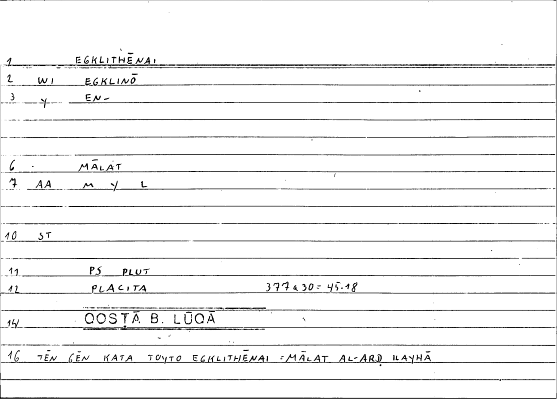 1 EGKLITHĒNAI
2 WI EGKLINŌ
3 Y EN-
6 MĀLAT
7 AA M Y L
10 ST
11 PS PLUT
12 PLACITA 377a30=45.18
14 QOSṬĀ B. LŪQĀ
16 TĒN GĒN KATA TOYTO EGKLITHĒNAI =MĀLAT AL-ARḌ ILAYHĀ